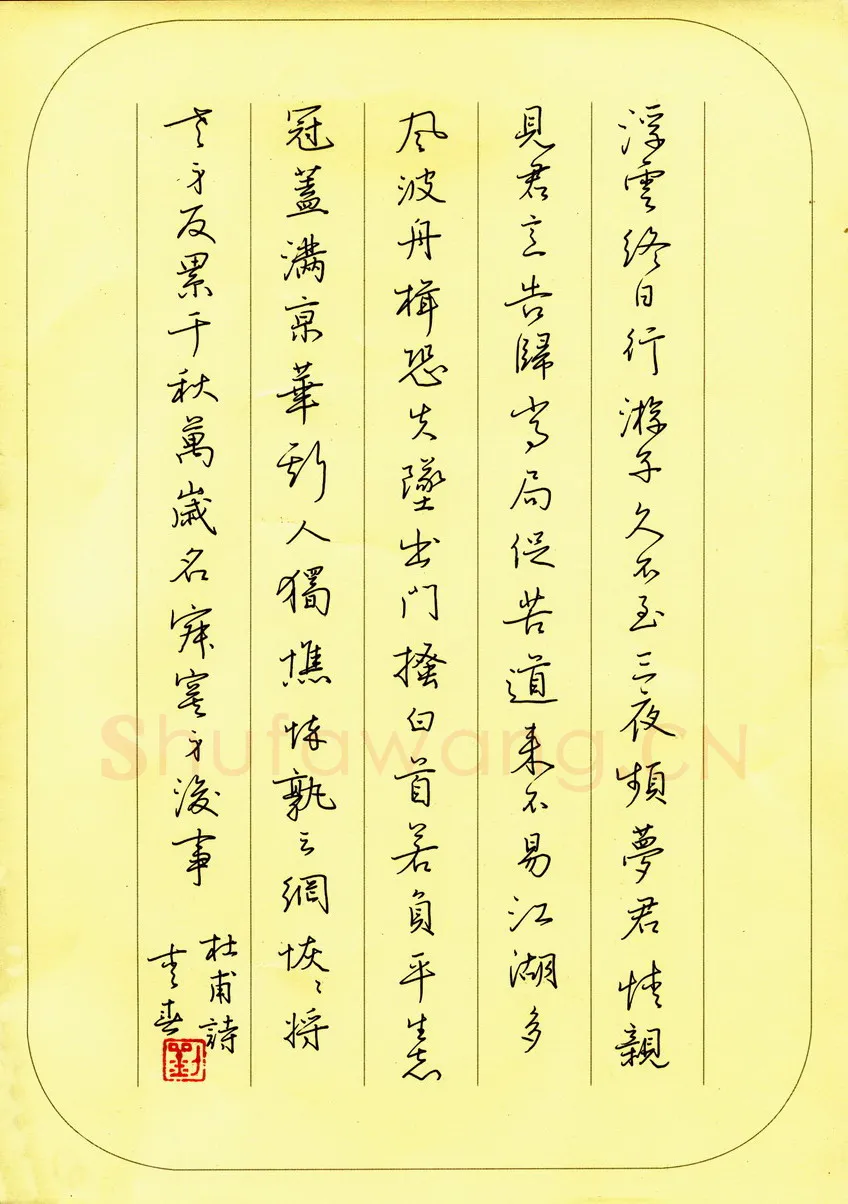 浮雲終日行游子久不至三夜頻夢君情親
見君意告歸常局促苦道來不易江湖多
風波舟楫恐失墜出門搔白首若負平生志
冠蓋滿京華斯人獨憔悴孰云網恢〻將
老身反累千秋萬歲名寂寞身後事
杜甫詩
春
劉
Shufawang.CN